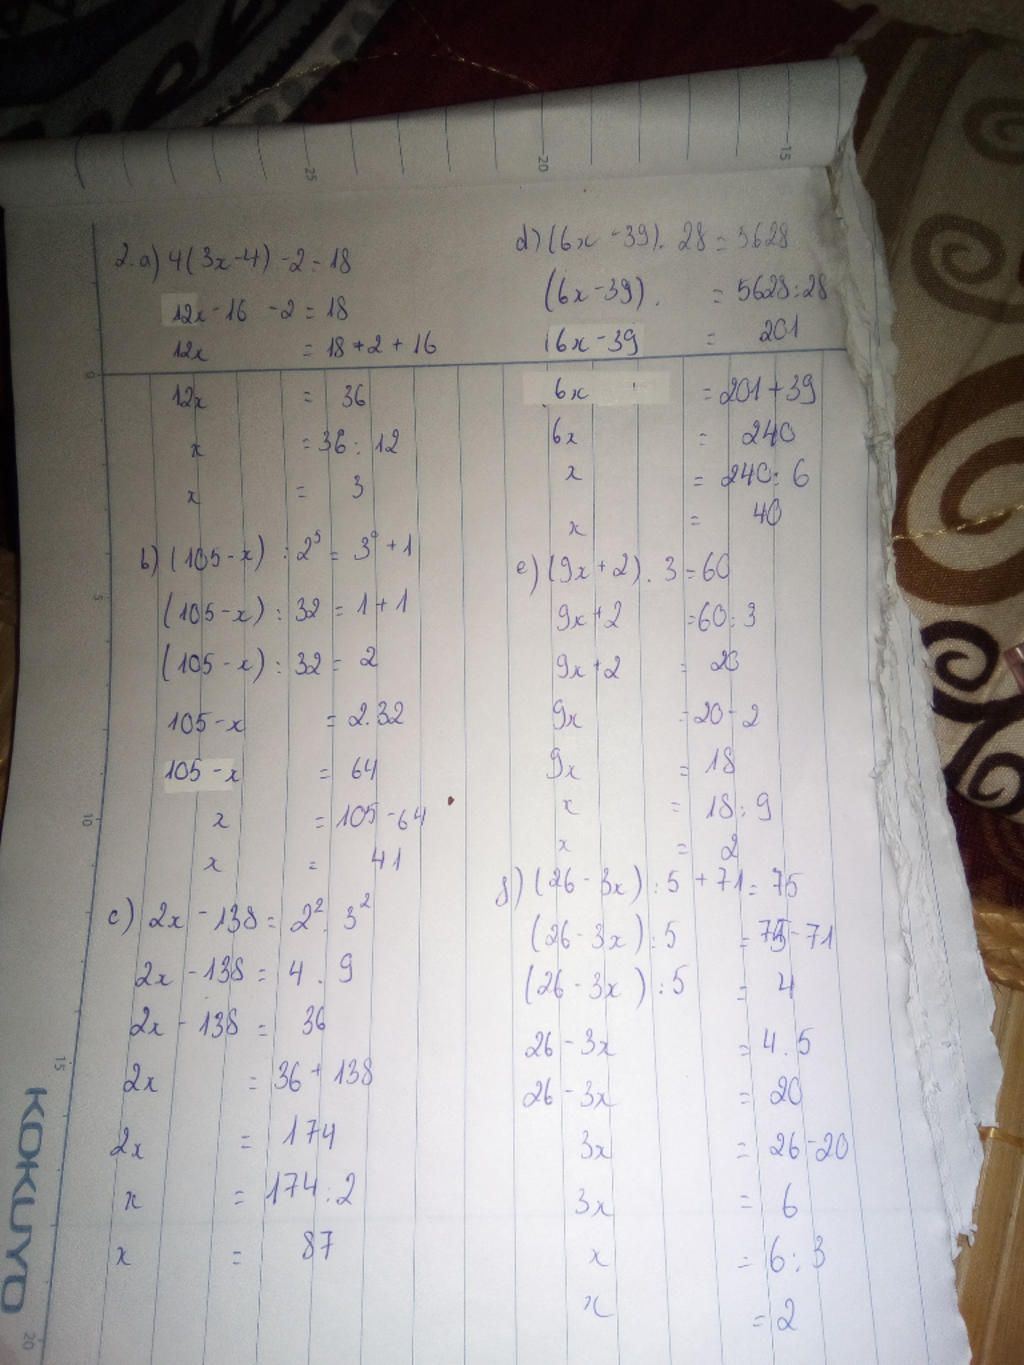 2.a) 4(3x-4) -2 = 18
12x-16 -2 = 18
12x = 18 + 2 + 16
12x = 36
x = 36 : 12
x = 3
b) (105-x) : 2⁵ = 3⁰ + 1
(105-x) : 32 = 1 + 1
(105-x) : 32 = 2
105-x = 2.32
105-x = 64
x = 105-64
x = 41
c) 2x - 138 = 2² . 3²
2x - 138 = 4 . 9
2x - 138 = 36
2x = 36 + 138
2x = 174
x = 174 : 2
x = 87
d) (6x - 39) . 28 = 5628
(6x-39) . = 5628:28
6x-39 = 201
6x = 201 + 39
6x = 240
x = 240 : 6
x = 40
e) (9x+2) . 3 = 60
9x+2 = 60 : 3
9x+2 = 20
9x = 20 - 2
9x = 18
x = 18 : 9
x = 2
g) (26 - 3x) : 5 + 71 = 75
(26 - 3x) : 5 = 75 - 71
(26 - 3x) : 5 = 4
26 - 3x = 4 . 5
26 - 3x = 20
3x = 26 - 20
3x = 6
x = 6 : 3
x = 2
25
20
15
0
5
10
15
20
KOKUYO